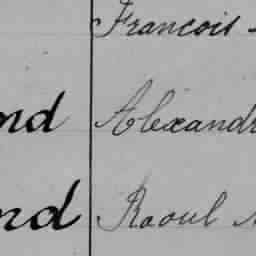 Francois
nd Alexand
nd Raoul